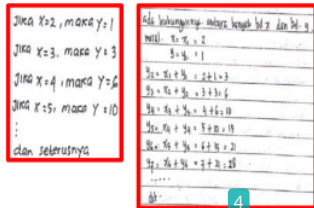 Jika x=2, maka y=1
Jika x=3, maka y=3
Jika x=4, maka y=6
Jika x=5, maka y=10
⋮
dan seterusnya
Ada hubungannya antara banyak x dan y
misal. x = x₁ = 2
y = y₁ = 1
y₂ = x₁ + y₁ = 2+1 = 3
y₃ = x₂ + y₂ = 3+3 = 6
y₄ = x₃ + y₃ = 4+6 = 10
y₅ = x₄ + y₄ = 5+10 = 15
y₆ = x₅ + y₅ = 6+15 = 21
y₇ = x₆ + y₆ = 7+21 = 28
......
dst.
4